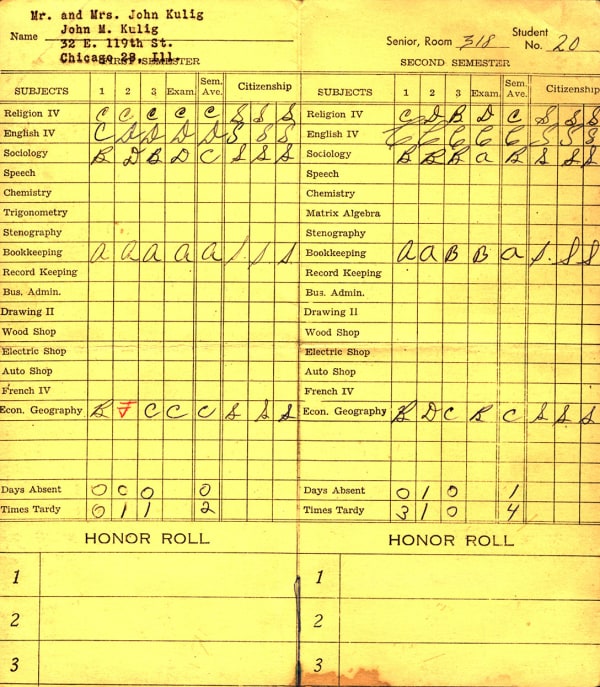 Mr. and Mrs. John Kulig
John M. Kulig
Name 32 E. 119th St.
Chicago 28, Ill.
FIRST SEMESTER
SUBJECTS 1 2 3 Exam. Sem. Ave. Citizenship
Religion IV C C C C C S S S
English IV C D D D D S S S
Sociology B D B D C S S S
Speech
Chemistry
Trigonometry
Stenography
Bookkeeping A A A A A S S S
Record Keeping
Bus. Admin.
Drawing II
Wood Shop
Electric Shop
Auto Shop
French IV
Econ. Geography B F C C C S S S
Days Absent 0 0 0 0
Times Tardy 0 1 1 2
HONOR ROLL
1
2
3
Senior, Room 318 Student No. 20
SECOND SEMESTER
SUBJECTS 1 2 3 Exam. Sem. Ave. Citizenship
Religion IV C D B D C S S S
English IV C C C C C S S S
Sociology B B B A B S S S
Speech
Chemistry
Matrix Algebra
Stenography
Bookkeeping A A B B A S. S S
Record Keeping
Bus. Admin.
Drawing II
Wood Shop
Electric Shop
Auto Shop
French IV
Econ. Geography B D C B C S S S
Days Absent 0 1 0 1
Times Tardy 3 1 0 4
HONOR ROLL
1
2
3